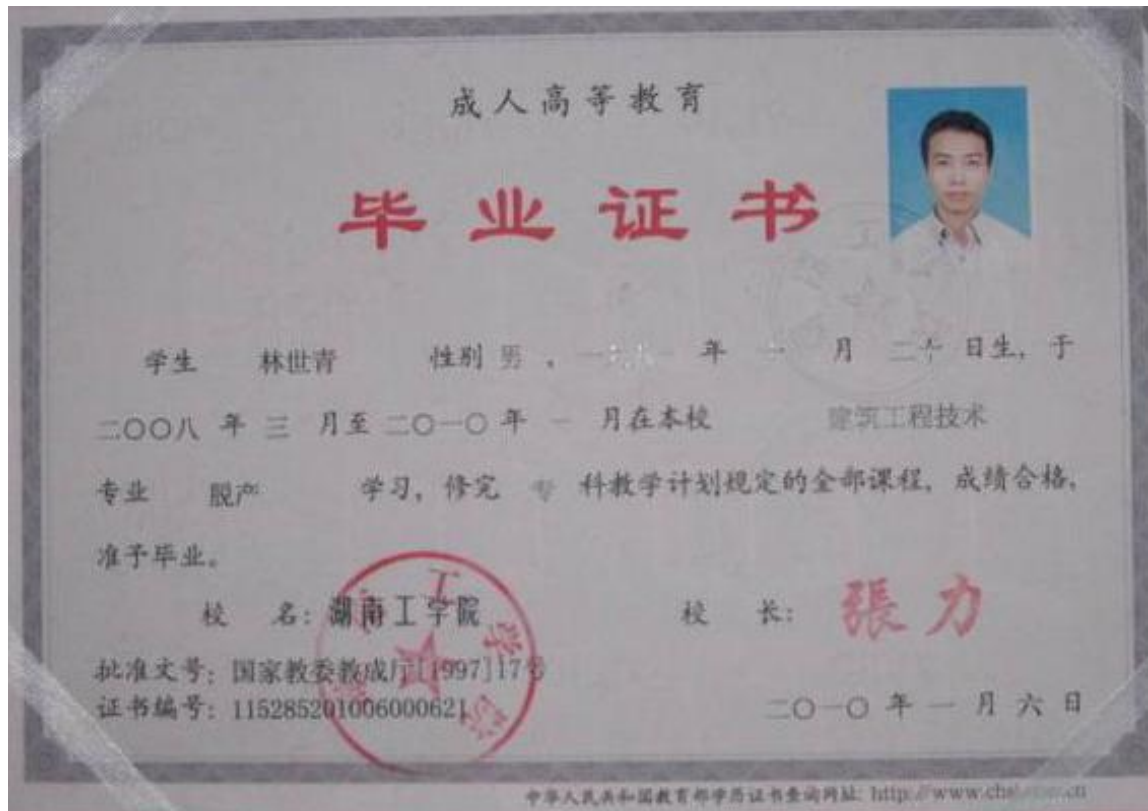 成人高等教育
毕业证书
学生 林世青 性别 男 , 年 一 月 二 日生, 于
二〇〇八 年 三 月至 二〇一〇 年 一 月在本校 建筑工程技术
专业 脱产 学习, 修完 专 科教学计划规定的全部课程, 成绩合格,
准予毕业。
校 名: 湖南工学院 校 长: 張力
批准文号: 国家教委教成厅[1997]17号
证书编号: 115285201006000621
二〇一〇 年 一 月 六 日
中华人民共和国教育部学历证书查询网址: http://www.